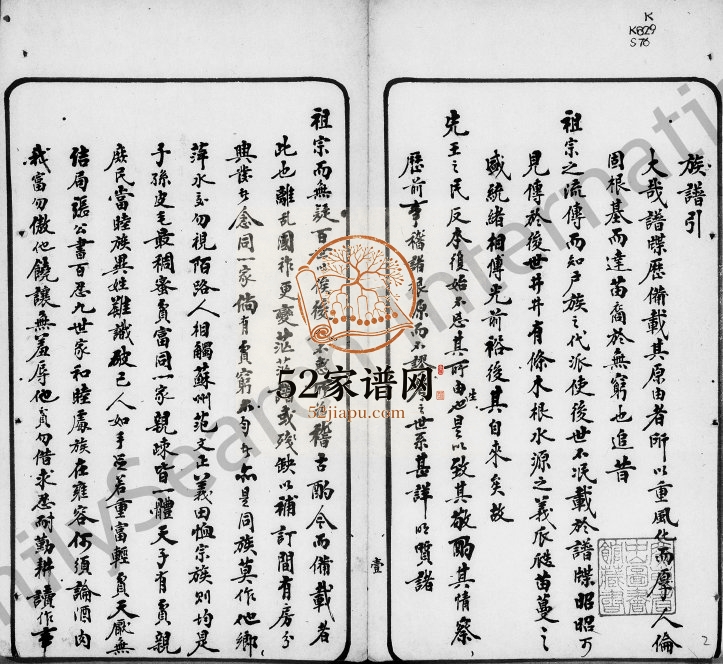 K
K829
S76
族譜引
大哉譜牒歷備載其原由者所以重風化而厚人倫
固根基而達苗裔於無窮也追昔
祖宗之流傳而知戶族之代派使後世不泯載於譜牒昭昭可
見傳於後世井井有條木根水源之義瓜瓞苗蔓之
盛統緒相傳光前裕後其自來矣故
先王之民反本復始不忘其所由生也是以致其敬酌其情察
歷前事稽諸根原而不謬之世系甚詳明質諸
祖宗而無疑百世以俟後不稽古酌今而備載者
此也離乱國祚更變茫茫或殘缺以補訂間有房分
興業者念同一家倘有貧窮不均者亦是同族莫作他鄉
萍水客勿視陌路人相觸蘇州范文正義田恤宗族則均是
子孫皮毛最稠蜜貧富同一家親疎皆一體天子有貧親
庶民當睦族異姓難識破己人如手足若重富輕貧天厭無
結局張公書百忍九世家和睦處族在雍容何須論酒肉
我富勿傲他饒讓無羞辱他貧勿借求忍耐勤耕讀作事
壹
52家谱网
52jiapu.com
FamilySearch International
2